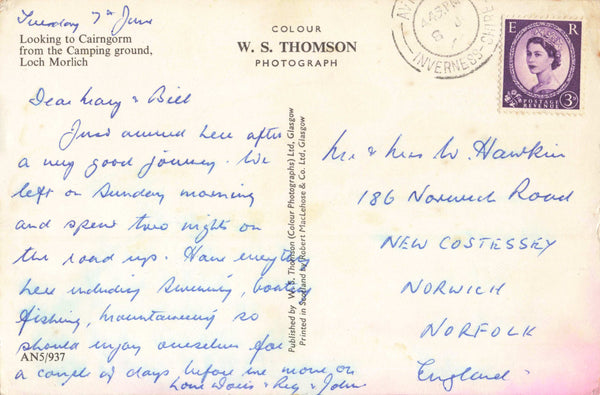 Tuesday 7th June
Looking to Cairngorm
from the Camping ground,
Loch Morlich
COLOUR
W. S. THOMSON
PHOTOGRAPH
INVERNESS-SHIRE
E R
POSTAGE
REVENUE
3D
Dear Mary & Bill
Just arrived here after
a very good journey. We
left on Sunday morning
and spent two nights on
the road up. Have everything
here including swimming, boating
fishing, mountaineering so
should enjoy ourselves for
a couple of days before we move on
Love Doris & Reg & John
AN5/937
Published by W. S. Thomson (Colour Photographs) Ltd, Glasgow
Printed in Scotland by Robert MacLehose & Co. Ltd, Glasgow
Mr & Mrs W. Hawkin
186 Norwich Road
NEW COSTESSEY
NORWICH
NORFOLK
England